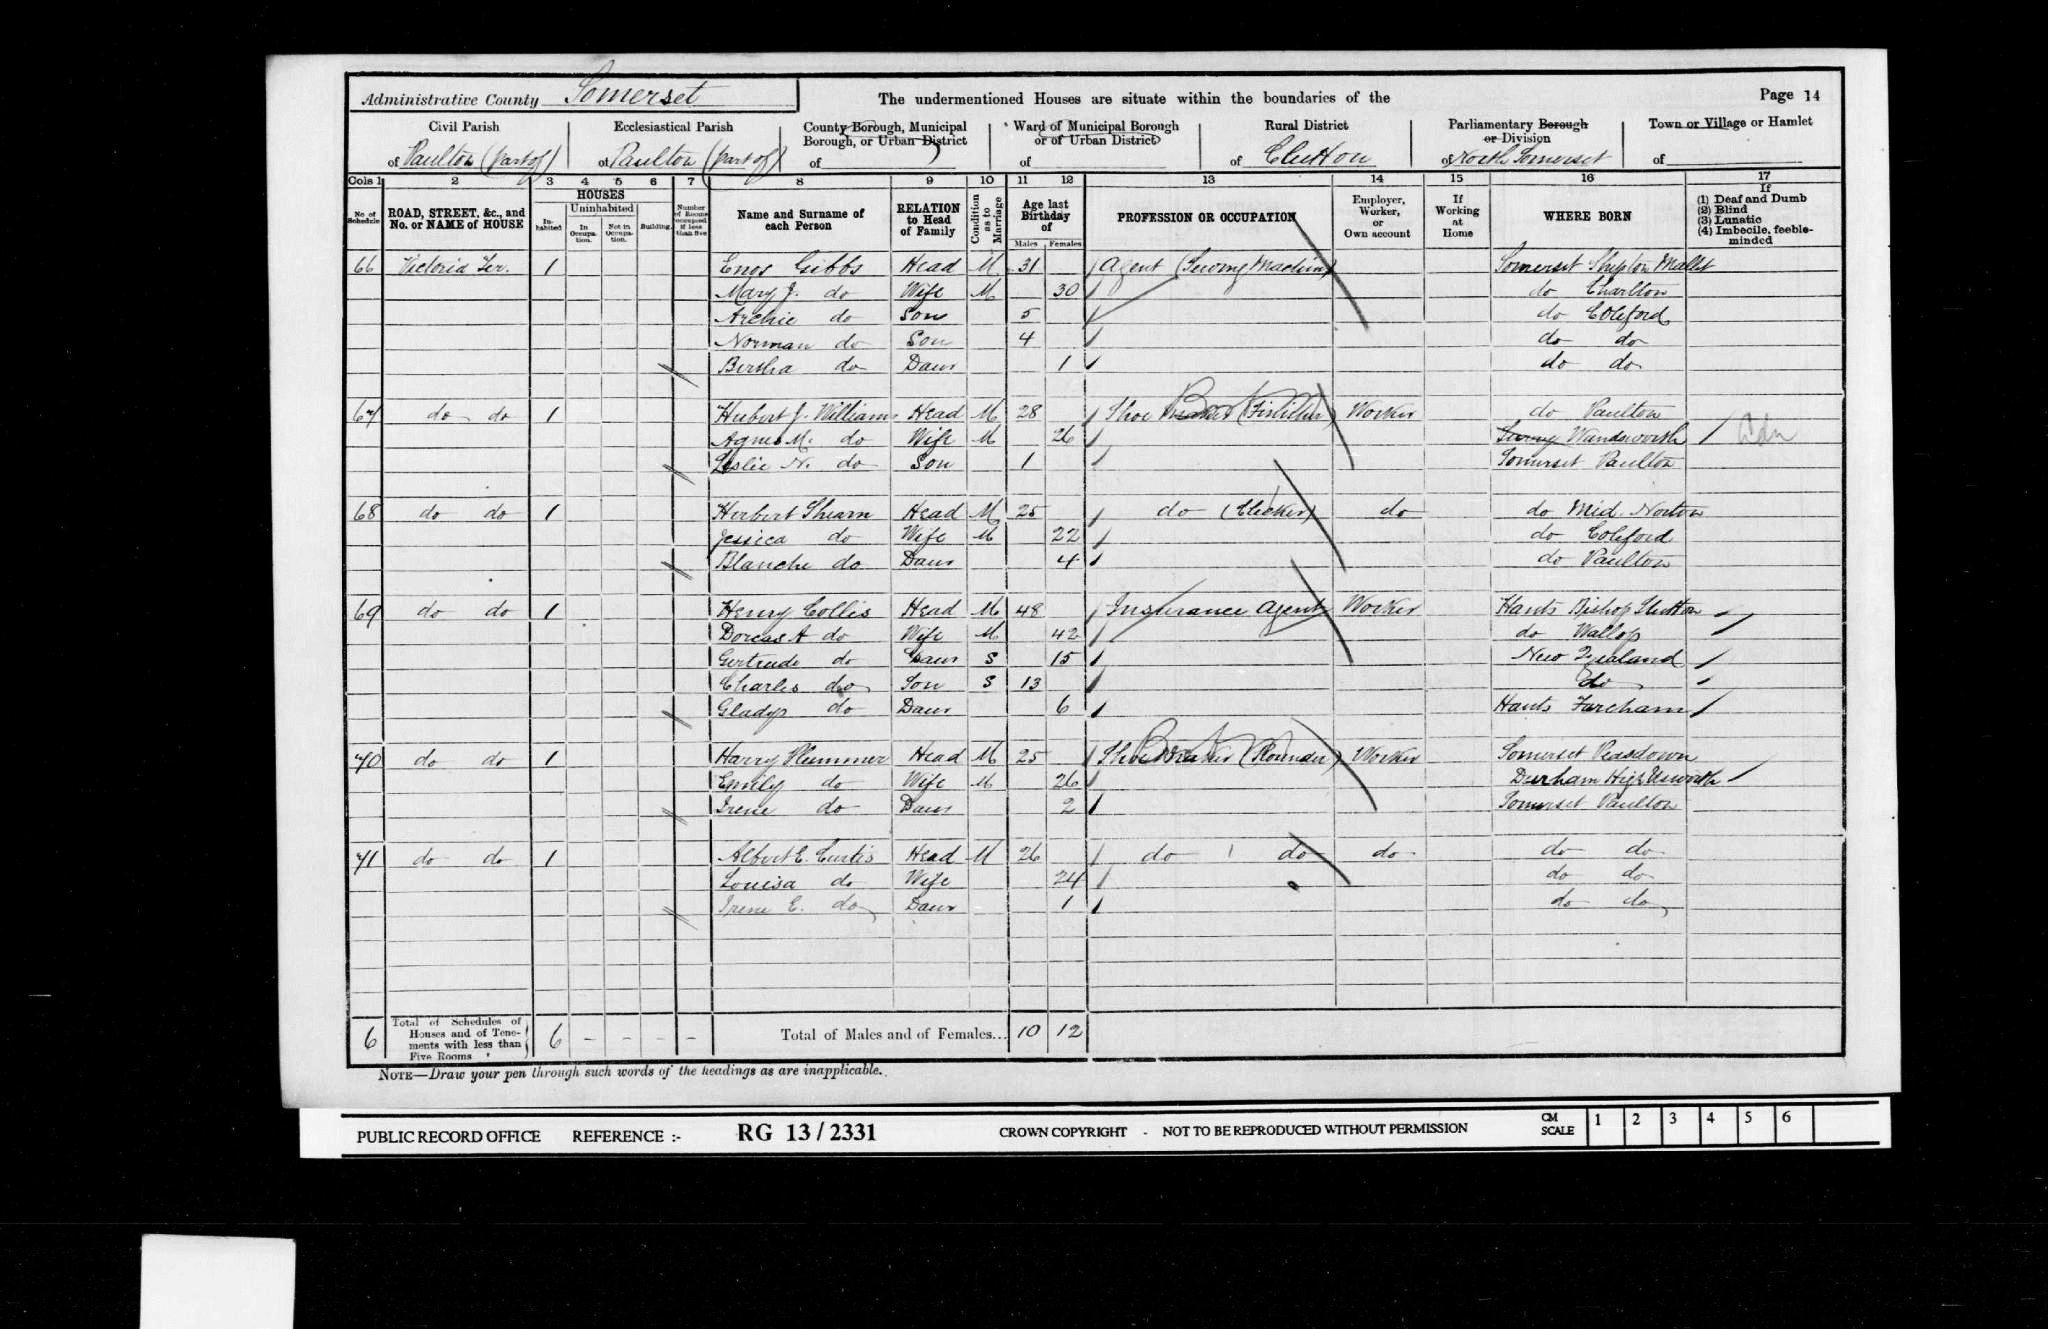 Administrative County Somerset
The undermentioned Houses are situate within the boundaries of the
Page 14
Civil Parish of Paulton (part of)
Ecclesiastical Parish of Paulton (part of)
County Borough, Municipal Borough, or Urban District of
Ward of Municipal Borough or of Urban District of
Rural District of Clutton
Parliamentary Borough or Division of North Somerset
Town or Village or Hamlet of
Cols 1 2 3 4 5 6 7 8 9 10 11 12 13 14 15 16 17
No. of Schedule
ROAD, STREET, &c., and No. or NAME of HOUSE
HOUSES
Inhabited
Uninhabited
In Occupation.
Not in Occupation.
Building.
Number of Rooms occupied if less than five
Name and Surname of each Person
RELATION to Head of Family
Condition as to Marriage
Age last Birthday of
Males Females
PROFESSION OR OCCUPATION
Employer, Worker, or Own account
If Working at Home
WHERE BORN
If
(1) Deaf and Dumb
(2) Blind
(3) Lunatic
(4) Imbecile, feeble-minded
66 Victoria Ter. 1 Enos Gibbs Head M 31 Agent (Sewing Machine) Somerset Shepton Mallet
Mary J. do Wife M 30 do Charlton
Archie do Son 5 do Coleford
Norman do Son 4 do do
Bertha do Daur 1 do do
67 do do 1 Hubert J. Williams Head M 28 Shoe (Finisher) Worker do Paulton
Agnes M. do Wife M 26 Surrey Wandsworth
Leslie N. do Son 1 Somerset Paulton
68 do do 1 Herbert Shearn Head M 25 do (Clicker) do do Mid. Norton
Jessica do Wife M 22 do Coleford
Blanche do Daur 4 do Paulton
69 do do 1 Henry Collis Head M 48 Insurance Agent Worker Hants Bishop Stutton
Dorcas A do Wife M 42 do Wallop
Gertrude do Daur S 15 New Zealand
Charles do Son S 13 do
Gladys do Daur 6 Hants Fareham
70 do do 1 Harry Plummer Head M 25 Shoe (Rounder) Worker Somerset Peasdown
Emily do Wife M 26 Durham High Usworth
Irene do Daur 2 Somerset Paulton
71 do do 1 Albert E. Curtis Head M 26 do do do do do
Louisa do Wife 24 do do
Irene E. do Daur 1 do do
6 Total of Schedules of Houses and of Tenements with less than Five Rooms 6 - - - - Total of Males and of Females... 10 12
NOTE—Draw your pen through such words of the headings as are inapplicable.
PUBLIC RECORD OFFICE REFERENCE :- RG 13/2331 CROWN COPYRIGHT - NOT TO BE REPRODUCED WITHOUT PERMISSION CM SCALE 1 2 3 4 5 6